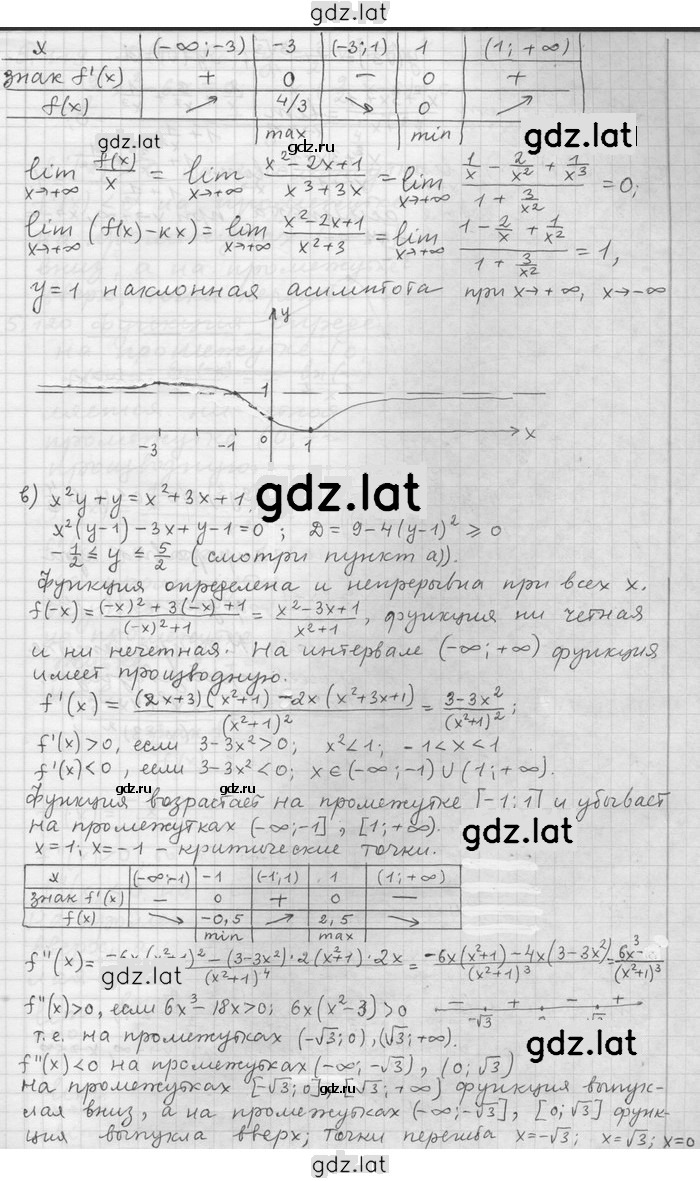 gdz.lat
x | (-∞;-3) | -3 | (-3;1) | 1 | (1;+∞)
знак f'(x) | + | 0 | − | 0 | +
f(x) | ↗ | 4/3 | ↘ | 0 | ↗
max min
gdz.lat
gdz.lat
lim x→+∞ f(x)/x = lim x→+∞ (x²-2x+1)/(x³+3x) = lim x→+∞ (1/x - 2/x² + 1/x³)/(1 + 3/x²) = 0;
lim x→+∞ (f(x)-kx) = lim x→+∞ (x²-2x+1)/(x²+3) = lim x→+∞ (1 - 2/x + 1/x²)/(1 + 3/x²) = 1,
y=1 наклонная асимптота при x→+∞, x→-∞
y
1
-3 -1 0 1 x
gdz.lat
в) x²y+y = x²+3x+1.
gdz.lat
x²(y-1)-3x+y-1=0; D = 9-4(y-1)² ≥ 0
-1/2 ≤ y ≤ 5/2 (смотри пункт а)).
Функция определена и непрерывна при всех x.
f(-x) = ((-x)²+3(-x)+1)/((-x)²+1) = (x²-3x+1)/(x²+1), функция ни четная
и ни нечетная. На интервале (-∞;+∞) функция
имеет производную.
f'(x) = ((2x+3)(x²+1)-2x(x²+3x+1))/(x²+1)² = (3-3x²)/(x²+1)²;
f'(x)>0, если 3-3x²>0; x²<1; -1<x<1
f'(x)<0, если 3-3x²<0; x∈(-∞;-1)∪(1;+∞).
gdz.lat
gdz.lat
Функция возрастает на промежутке [-1;1] и убывает
на промежутках (-∞;-1], [1;+∞).
gdz.lat
x=1; x=-1 - критические точки.
x | (-∞;-1) | -1 | (-1;1) | 1 | (1;+∞)
знак f'(x) | − | 0 | + | 0 | −
f(x) | ↘ | -0,5 | ↗ | 2,5 | ↘
min max
f''(x) = (-6x(x²+1)²-(3-3x²)·2(x²+1)·2x)/(x²+1)⁴ = (-6x(x²+1)-4x(3-3x²))/(x²+1)³ = 6x³-/(x²+1)³
gdz.lat
gdz.lat
f''(x)>0, если 6x³-18x>0; 6x(x²-3)>0
− + − +
-√3 0 √3
т.е. на промежутках (-√3;0), (√3;+∞).
f''(x)<0 на промежутках (-∞;-√3), (0;√3)
gdz.lat
на промежутках [-√3;0], [√3;+∞) функция выпук-
лая вниз, а на промежутках (-∞;-√3], [0;√3] функ-
ция выпукла вверх; точки перегиба x=-√3; x=√3; x=0
gdz.lat